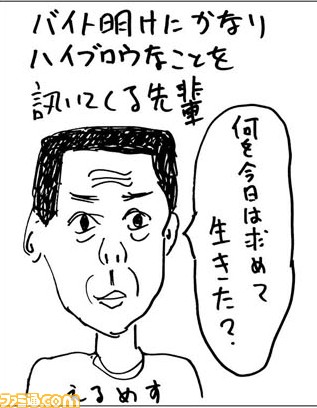 バイト明けにかなり
ハイブロウなことを
訊いてくる先輩
何を今日は求めて
生きた?
えるめす
ファミ通com